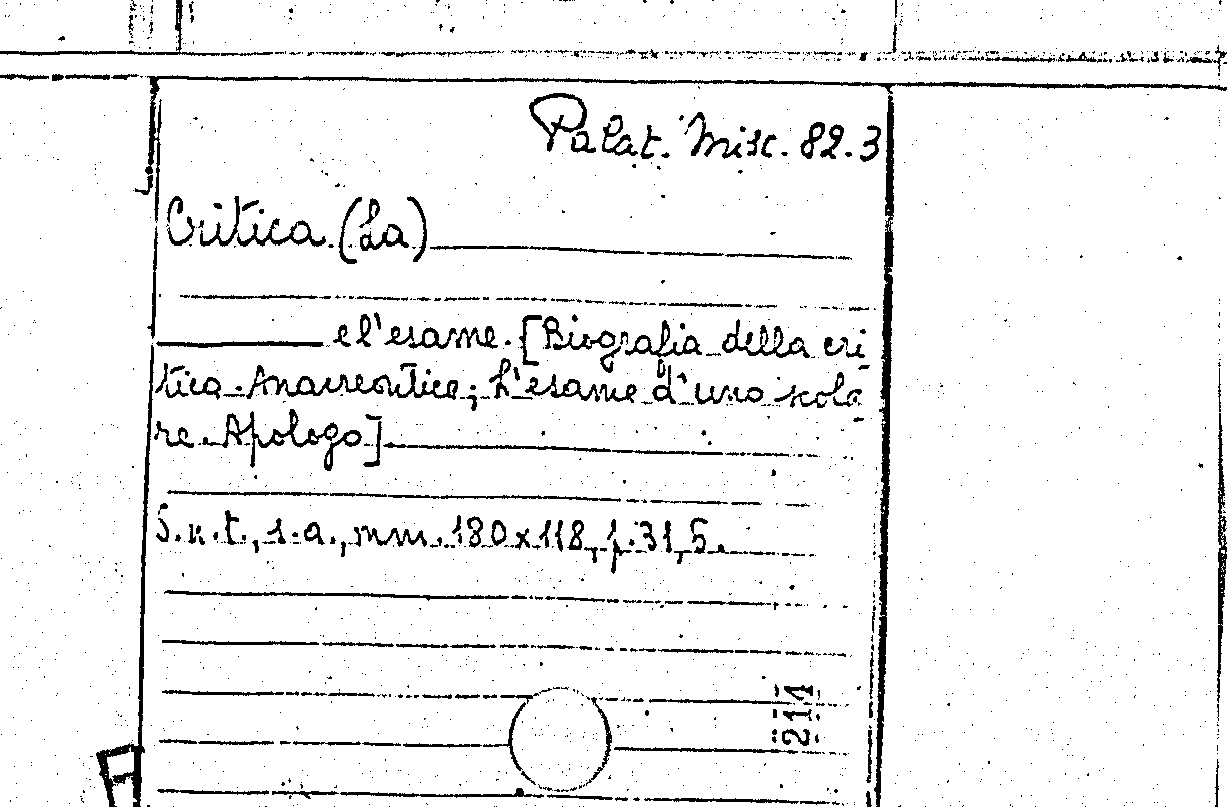 Palat. Misc. 82.3
Critica (La)
e l'esame. [Biografia della cri
tica. Anacreontice; L'esame d'uno scola
re. Apologo]
S.n.t., s.a., mm. 180x118, p. 31, 5.
214